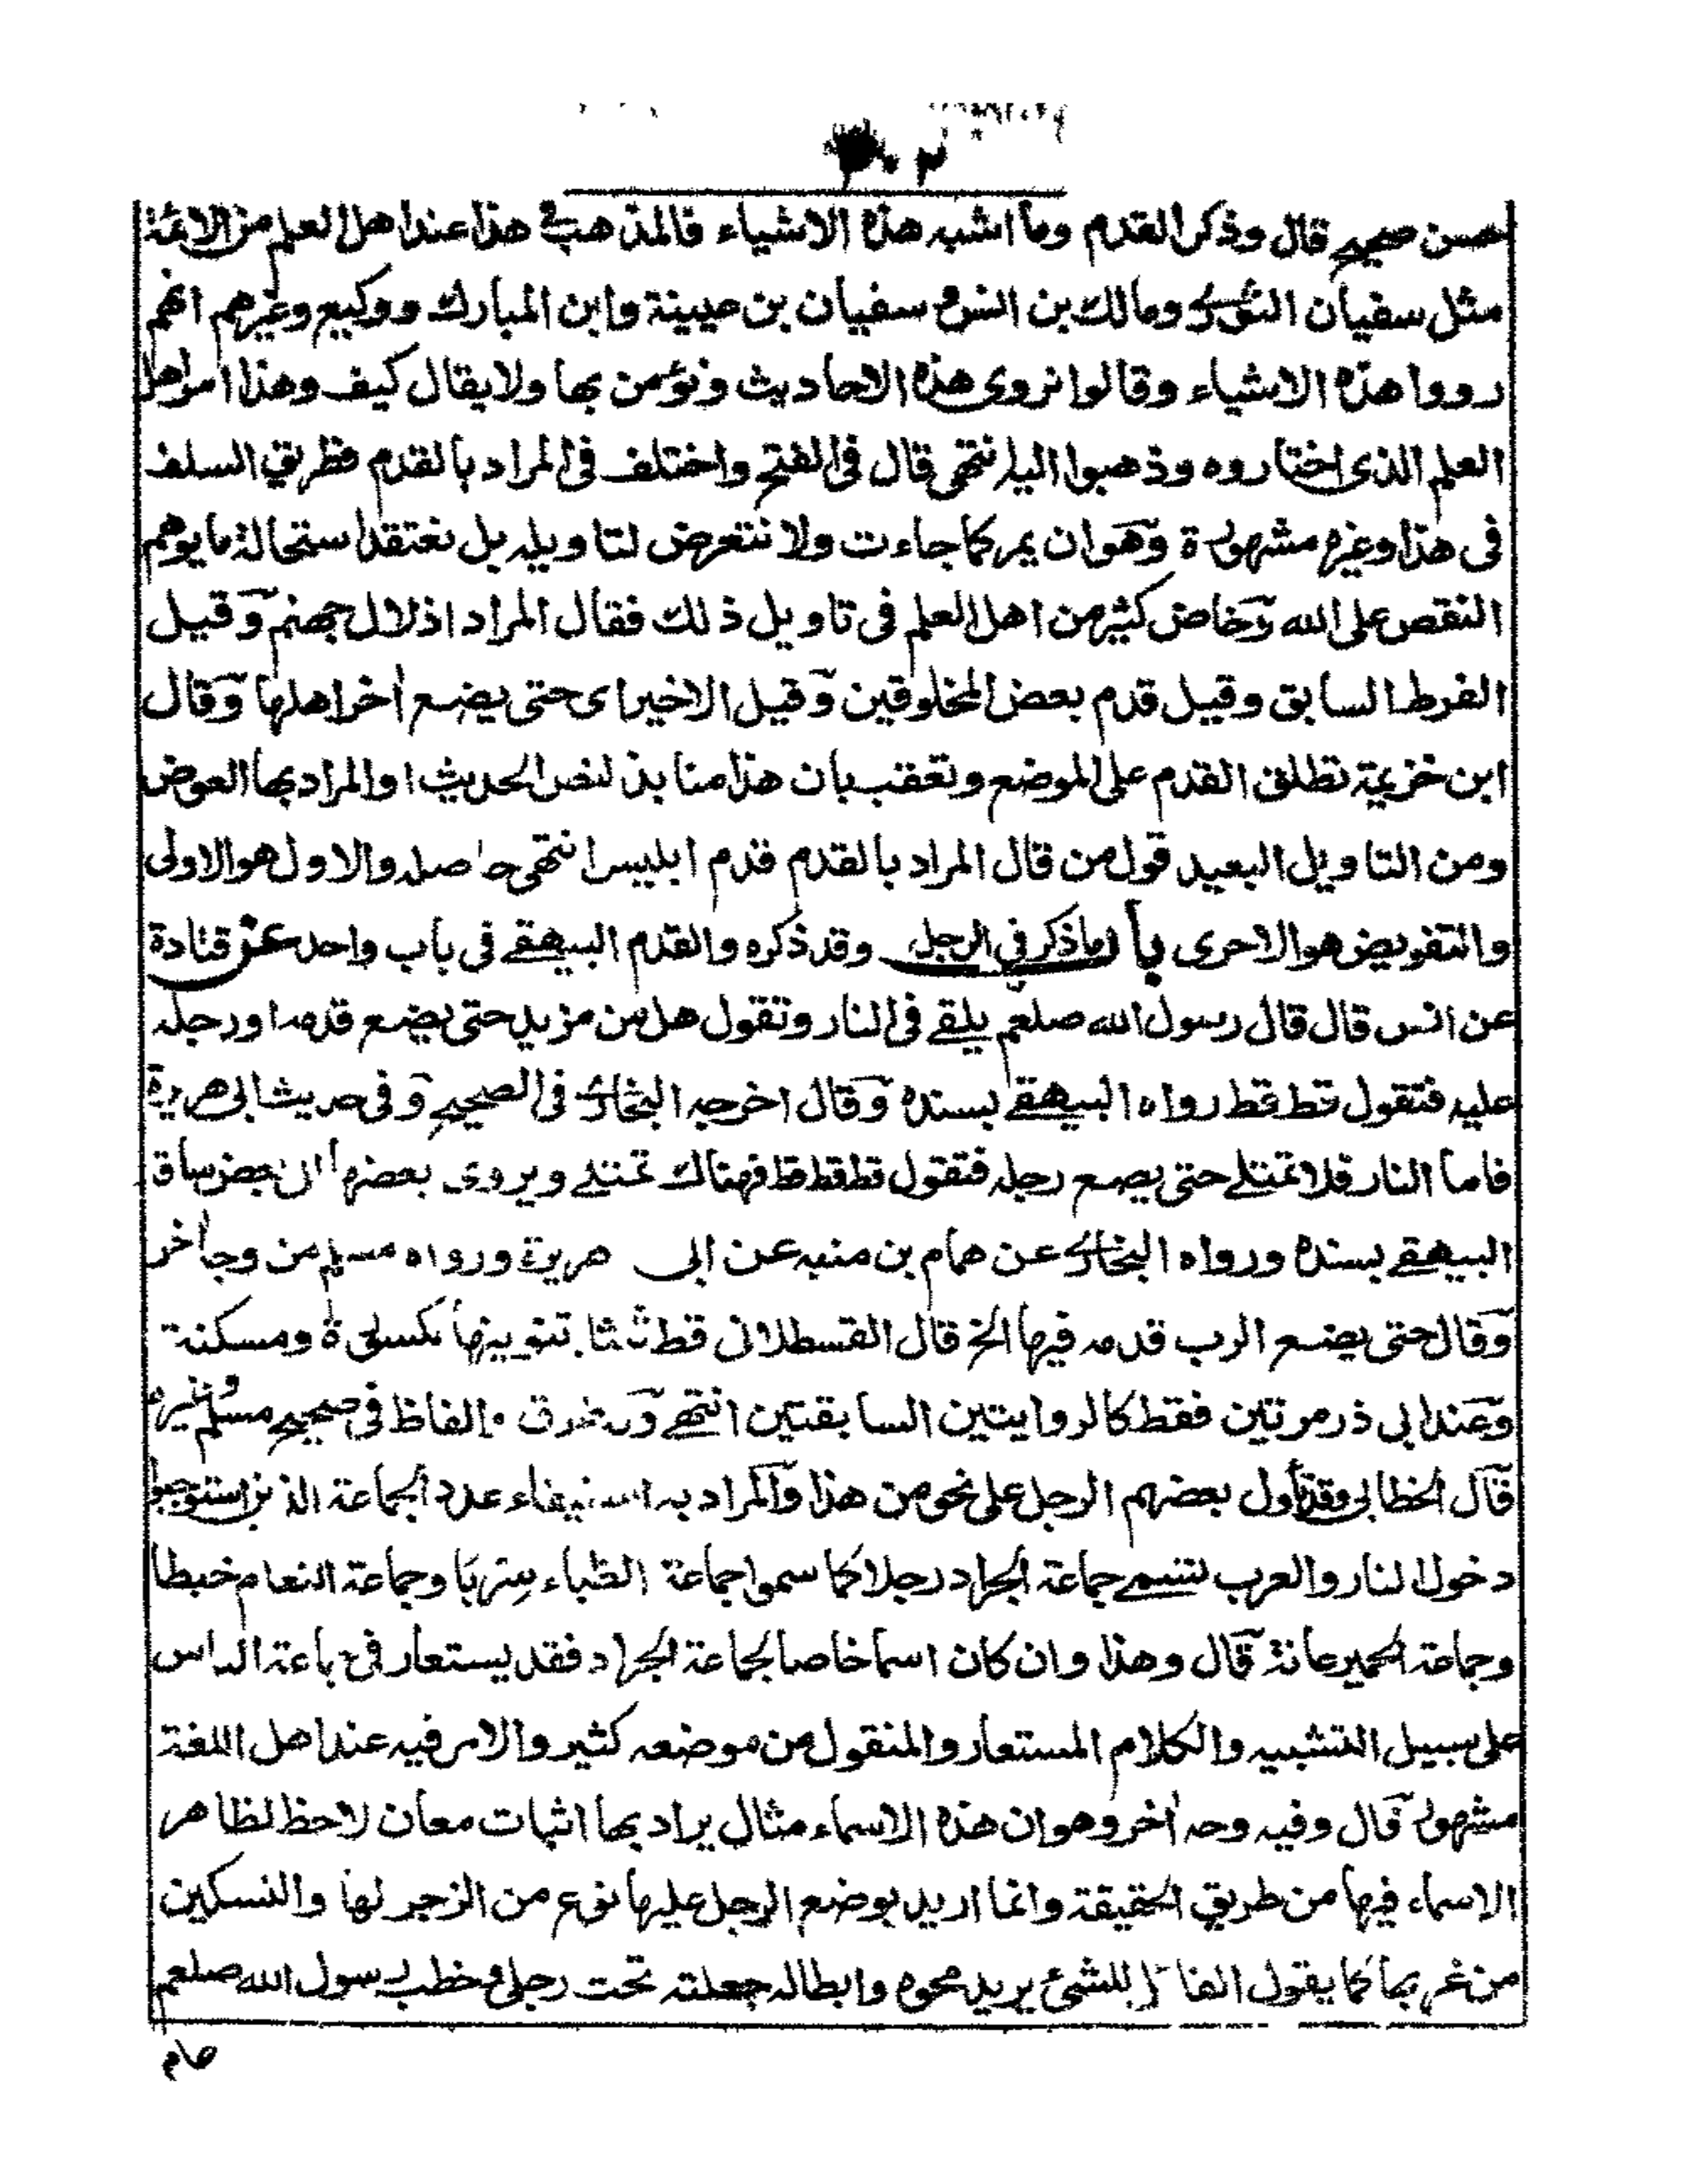 حسن صحيح قال وذكر القدم وما اشبه هذه الاشياء فالمذهب فى هذا عند اهل العلم من الائمة
مثل سفيان الثوري ومالك بن انس وسفيان بن عيينة وابن المبارك ووكيع وغيرهم انهم
رووا هذه الاشياء وقالوا نروى هذه الاحاديث ونؤمن بها ولا يقال كيف وهذا امر اهل
العلم الذى اختاروه وذهبوا اليه انتهى قال فى الفتح واختلف فى المراد بالقدم فطريق السلف
فى هذا وغيره مشهورة وهو ان يمر كما جاءت ولا نتعرض لتاويله بل نعتقد استحالة ما يوهم
النقص على الله وخاض كثير من اهل العلم فى تاويل ذلك فقال المراد اذلال جهنم وقيل
الفرط السابق وقيل قدم بعض المخلوقين وقيل الاخير اى حتى يضع اخر اهلها وقال
ابن خزيمة تطلق القدم على الموضع وتعقب بان هذا منابذ لنص الحديث او المراد بها العوض
ومن التاويل البعيد قول من قال المراد بالقدم قدم ابليس انتهى حاصله والاول هو الاولى
والتفويض هو الاحرى باب ما ذكر فى الرجل وقد ذكره والقدم البيهقے فى باب واحد عن قتادة
عن انس قال قال رسول الله صلعم يلقے فى النار وتقول هل من مزيد حتى يضع قدمه او رجله
عليه فتقول قط قط رواه البيهقے بسنده وقال اخرجه البخارى فى الصحيح وفى حديث ابى هريرة
فاما النار فلا تمتلے حتى يضع رجله فتقول قط قط قط فهناك تمتلے ويزوى بعضها الى بعض ساق
البيهقے بسنده ورواه البخارى عن همام بن منبه عن ابى هريرة ورواه مسلم من وجه اخر
وقال حتى يضع الرب قدمه فيها الخ قال القسطلانى قط ثلثا بتنوينها مكسورة ومسكنة
وعند ابى ذر مرتين فقط كالروايتين السابقتين انتهے وله طرق والفاظ فى صحيح مسلم وغيره
قال الخطابى وقد تأول بعضهم الرجل على نحو من هذا والمراد به استيفاء عدد الجماعة الذين استوجبوا
دخول النار والعرب تسمے جماعة الجراد رجلا كما سموا جماعة الظباء سِربًا وجماعة النعام خيطا
وجماعة الحمير عانة قال وهذا وان كان اسما خاصا لجماعة الجراد فقد يستعار فى جماعة الناس
على سبيل التشبيه والكلام المستعار والمنقول من موضعه كثير والامر فيه عند اهل اللغة
مشهور قال وفيه وجه اخر وهو ان هذه الاسماء مثال يراد بها اثبات معان لا حظ لظاهر
الاسماء فيها من طريق الحقيقة وانما اريد بوضع الرجل عليها نوع من الزجر لها والتسكين
من غربها كما يقول القائل للشئ يريد محوه وابطاله جعلته تحت رجلى وخطب رسول الله صلعم
عام